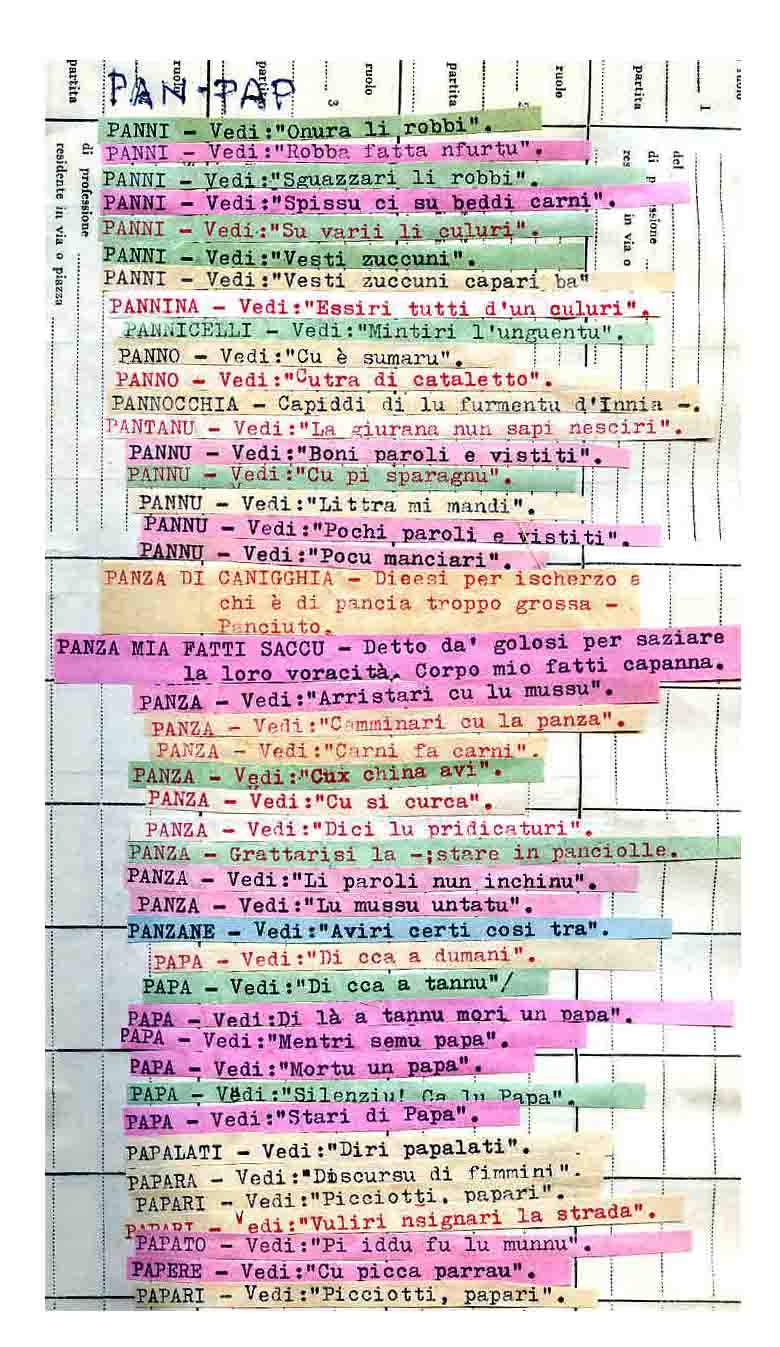 partita
ruolo
partita
3
ruolo
partita
ruolo
partita
1
ruolo
PAN-PAP
di professione
residente in via o piazza
del
PANNI - Vedi:"Onura li robbi".
PANNI - Vedi:"Robba fatta nfurtu".
PANNI - Vedi:"Sguazzari li robbi".
PANNI - Vedi:"Spissu ci su beddi carni".
PANNI - Vedi:"Su varii li culuri".
PANNI - Vedi:"Vesti zuccuni".
PANNI - Vedi:"Vesti zuccuni capari ba"
PANNINA - Vedi:"Essiri tutti d'un culuri".
PANNICELLI - Vedi:"Mintiri l'unguentu".
PANNO - Vedi:"Cu è sumaru".
PANNO - Vedi:"Cutra di cataletto".
PANNOCCHIA - Capiddi di lu furmentu d'Innia -.
PANTANU - Vedi:"La giurana nun sapi nesciri".
PANNU - Vedi:"Boni paroli e vistiti".
PANNU - Vedi:"Cu pi sparagnu".
PANNU - Vedi:"Littra mi mandi".
PANNU - Vedi:"Pochi paroli e vistiti".
PANNU - Vedi:"Pocu manciari".
PANZA DI CANIGGHIA - Dicesi per ischerzo a
chi è di pancia troppo grossa -
Panciuto.
PANZA MIA FATTI SACCU - Detto da' golosi per saziare
la loro voracità. Corpo mio fatti capanna.
PANZA - Vedi:"Arristari cu lu mussu".
PANZA - Vedi:"Camminari cu la panza".
PANZA - Vedi:"Carni fa carni".
PANZA - Vedi:"Cux china avi".
PANZA - Vedi:"Cu si curca".
PANZA - Vedi:"Dici lu pridicaturi".
PANZA - Grattarisi la -;stare in panciolle.
PANZA - Vedi:"Li paroli nun inchinu".
PANZA - Vedi:"Lu mussu untatu".
PANZANE - Vedi:"Aviri certi cosi tra".
PAPA - Vedi:"Di cca a dumani".
PAPA - Vedi:"Di cca a tannu"/
PAPA - Vedi:Di là a tannu mori un papa".
PAPA - Vedi:"Mentri semu papa".
PAPA - Vedi:"Mortu un papa".
PAPA - Vedi:"Silenziu! Ca lu Papa".
PAPA - Vedi:"Stari di Papa".
PAPALATI - Vedi:"Diri papalati".
PAPARA - Vedi:"Discursu di fimmini".
PAPARI - Vedi:"Picciotti, papari".
PAPARI - Vedi:"Vuliri nsignari la strada".
PAPATO - Vedi:"Pi iddu fu lu munnu".
PAPERE - Vedi:"Cu picca parrau".
PAPARI - Vedi:"Picciotti, papari".